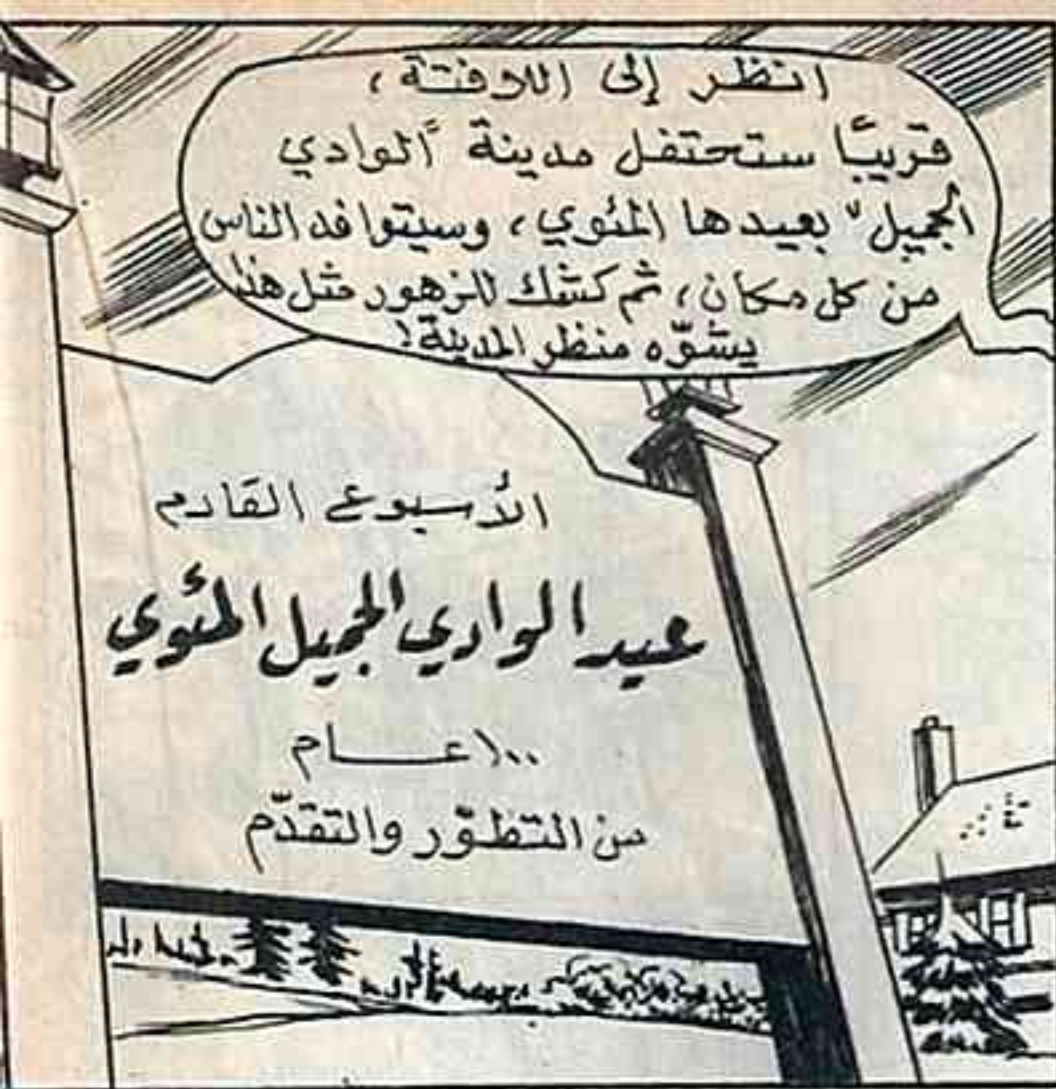 انظر إلى اللافتة ،
قريبًا ستحتفل مدينة "الوادي
الجميل" بعيدها المئوي ، وسيتوافد الناس
من كل مكان ، ثم كشك للزهور مثل هذا
يشوّه منظر المدينة !
الأسبوع القادم
عيد الوادي الجميل المئوي
١٠٠ عــام
من التطوّر والتقدّم